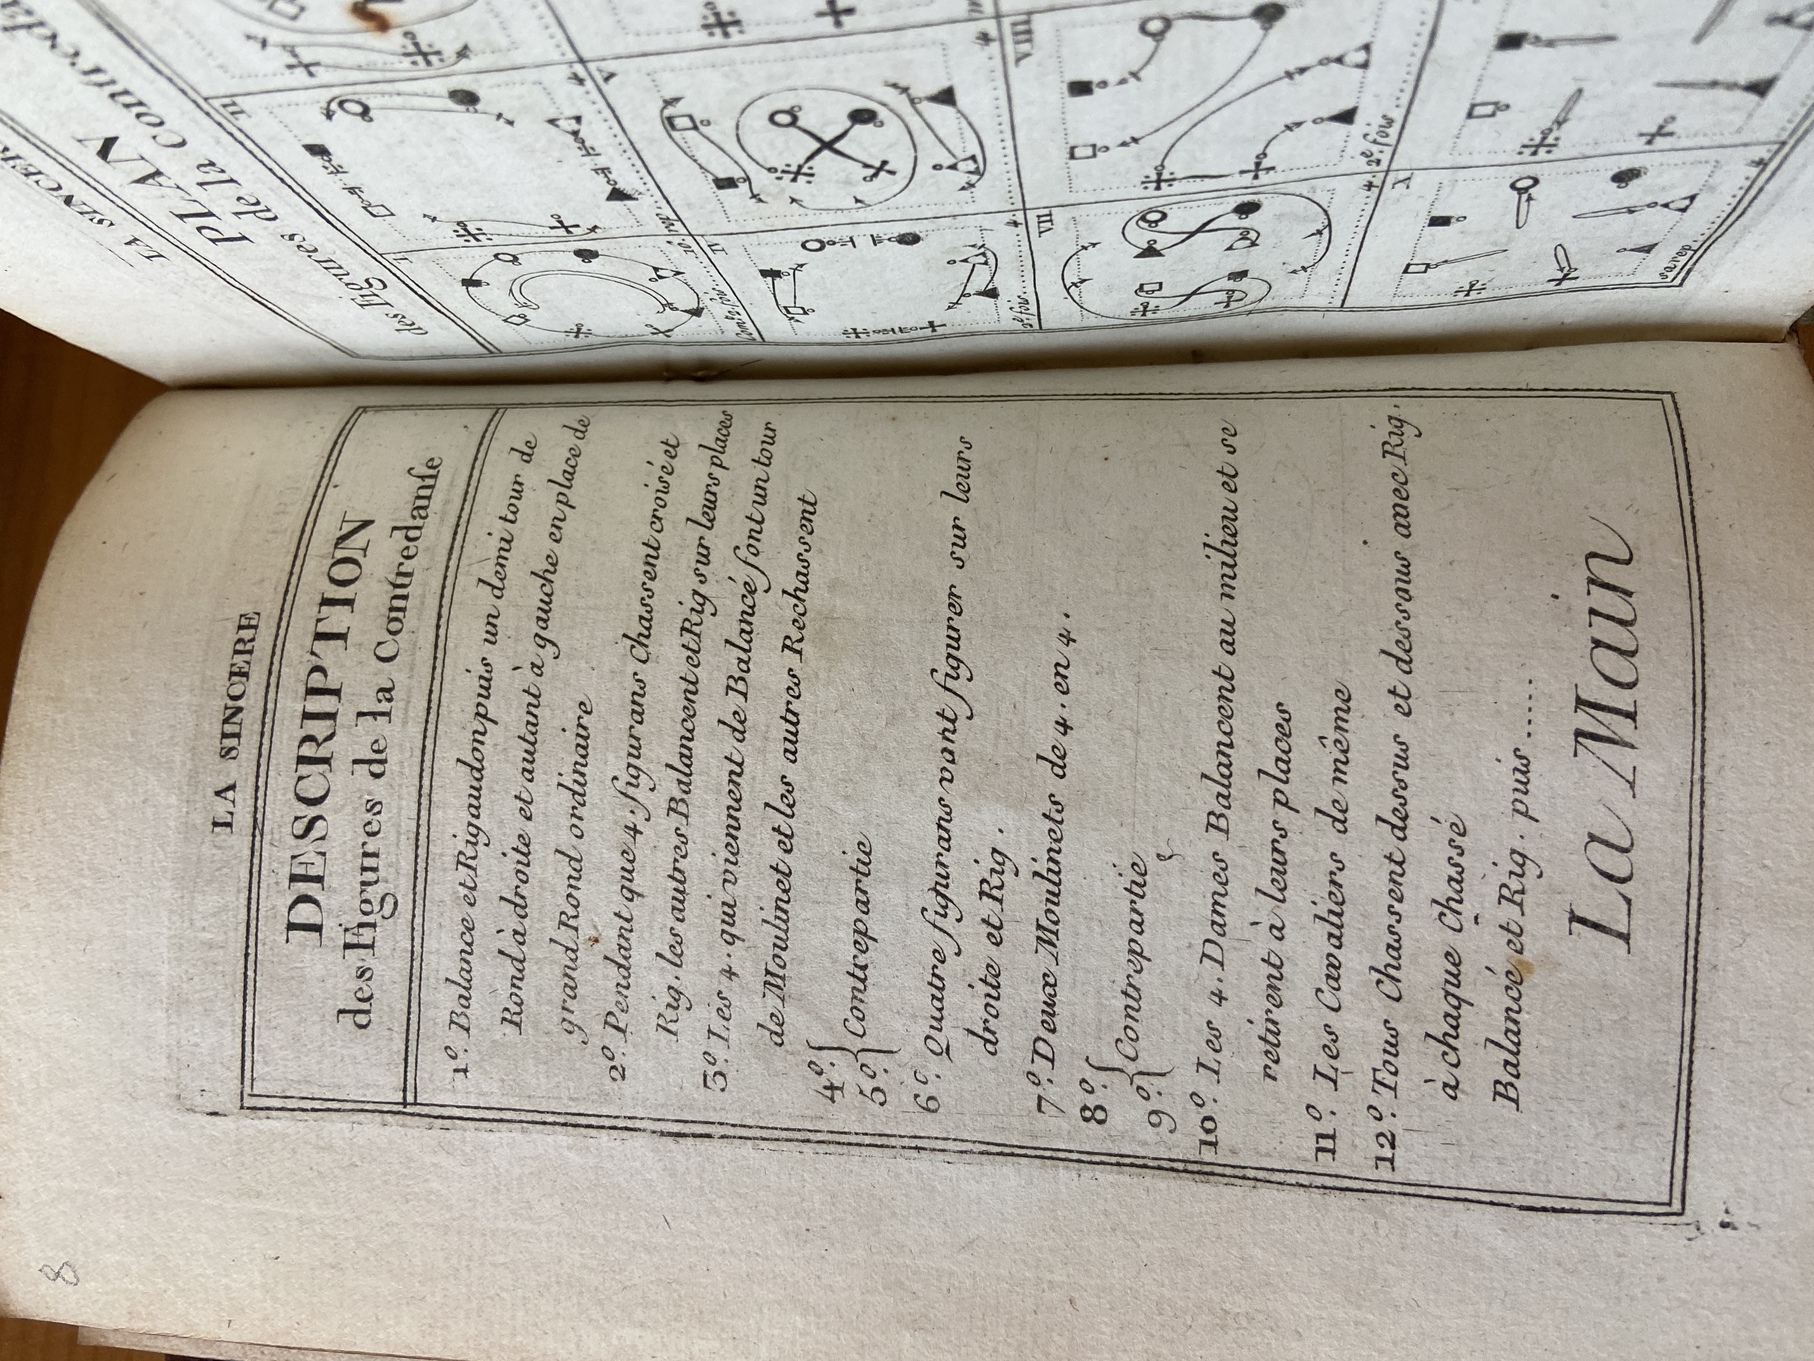 8
LA SINCERE
DESCRIPTION
des Figures de la Contredanſe
1º. Balance et Rigaudon puis un demi tour de
Rond à droite et autant à gauche en place de
grand Rond ordinaire
2º. Pendant que 4. figurans Chassent croisé et
Rig. les autres Balancent et Rig sur leurs places
3º. Les 4. qui viennent de Balancé font un tour
de Moulinet et les autres Rechassent
4º.
5º. Contrepartie
6º. Quatre figurans vont figurer sur leurs
droite et Rig.
7º. Deux Moulinets de 4. en 4.
8º.
9º. Contrepartie
10º. Les 4. Dames Balancent au milieu et se
retirent à leurs places
11º. Les Cavaliers de même
12º. Tous Chassent dessus et dessous avec Rig.
à chaque Chassé
Balancé et Rig. puis.....
La Main
LA SINCER
PLAN
des figures de la contreda
II
IV
V
VII
VIII
X
4. 2º. fois